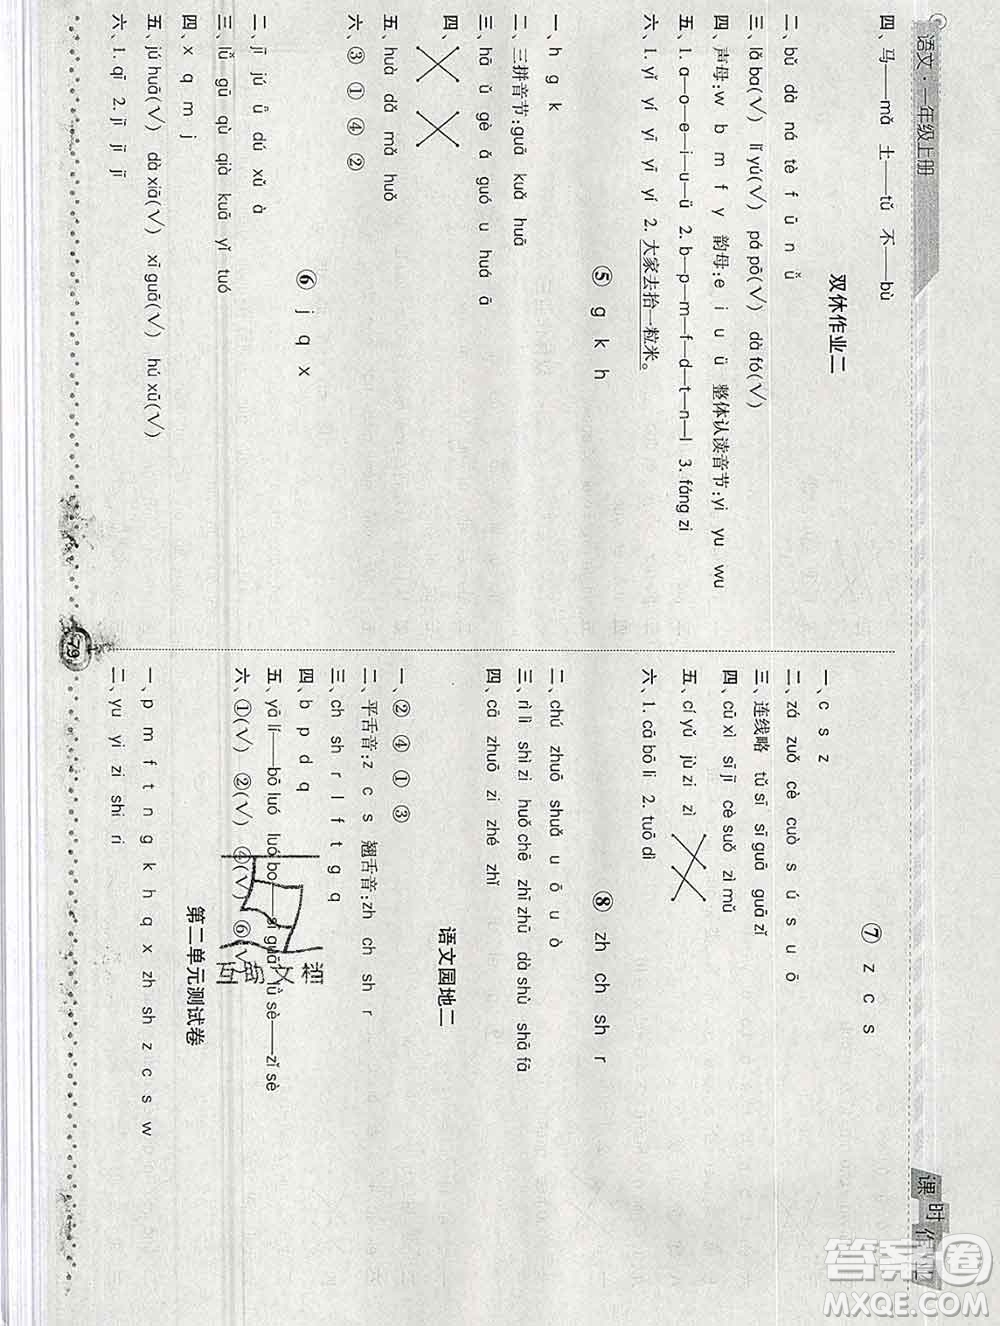 语文·一年级上册
四、马——mǎ 土——tǔ 不——bù
双休作业二
二、bǔ dà ná tè f ū n ǔ
三、lǎ ba(√) lǐ yú(√) pá pō(√) dà fó(√)
四、声母:w b m f y 韵母:e i u ü 整体认读音节:yi yu wu
五、1. a—o—e—i—u—ü 2. b—p—m—f—d—t—n—l 3. fáng zi
六、1. yǐ yí yī yǐ yí 2. 大家去抬一粒米。
⑤ g k h
一、h g k
二、三拼音节:guā kuǎ huā
三、hā ǔ gè ǎ guó u huá ā
四、
五、huà dǎ mǎ huǒ
六、③ ① ④ ②
⑥ j q x
二、jī jú ǖ dú xǔ à
三、lǚ gū qù qià kuā yǐ tuó
四、x q m j
五、jú huā(√) dà xiā(√) xī guā(√) hú xū(√)
六、1. qī 2. jī jī jī
⑦ z c s
一、c s z
二、zá zuǒ cè cuò s ú s u ō
三、连线略 tǔ sī sī guā guā zǐ
四、cū xì sī jī cè suǒ zì mǔ
五、cí yǔ jù zi zì
六、1. cā bō li 2. tuō dì
⑧ zh ch sh r
二、chú zhuō shuǎ u ō u ò
三、rì lì shì zi huǒ chē zhī zhū dà shù shā fā
四、cā zhuō zi zhé zhǐ
语文园地二
一、② ④ ① ③
二、平舌音:z c s 翘舌音:zh ch sh r
三、ch sh r l f t g q
四、b p d q
五、yā lí——bō luó luó bo
六、①(√) ②(√) ④(√) ⑥(√)
第二单元测试卷
一、p m f t n g k h q x zh sh z c s w
二、yu yi zi shi ri
79
课时作业
答案圈
MXQE.COM